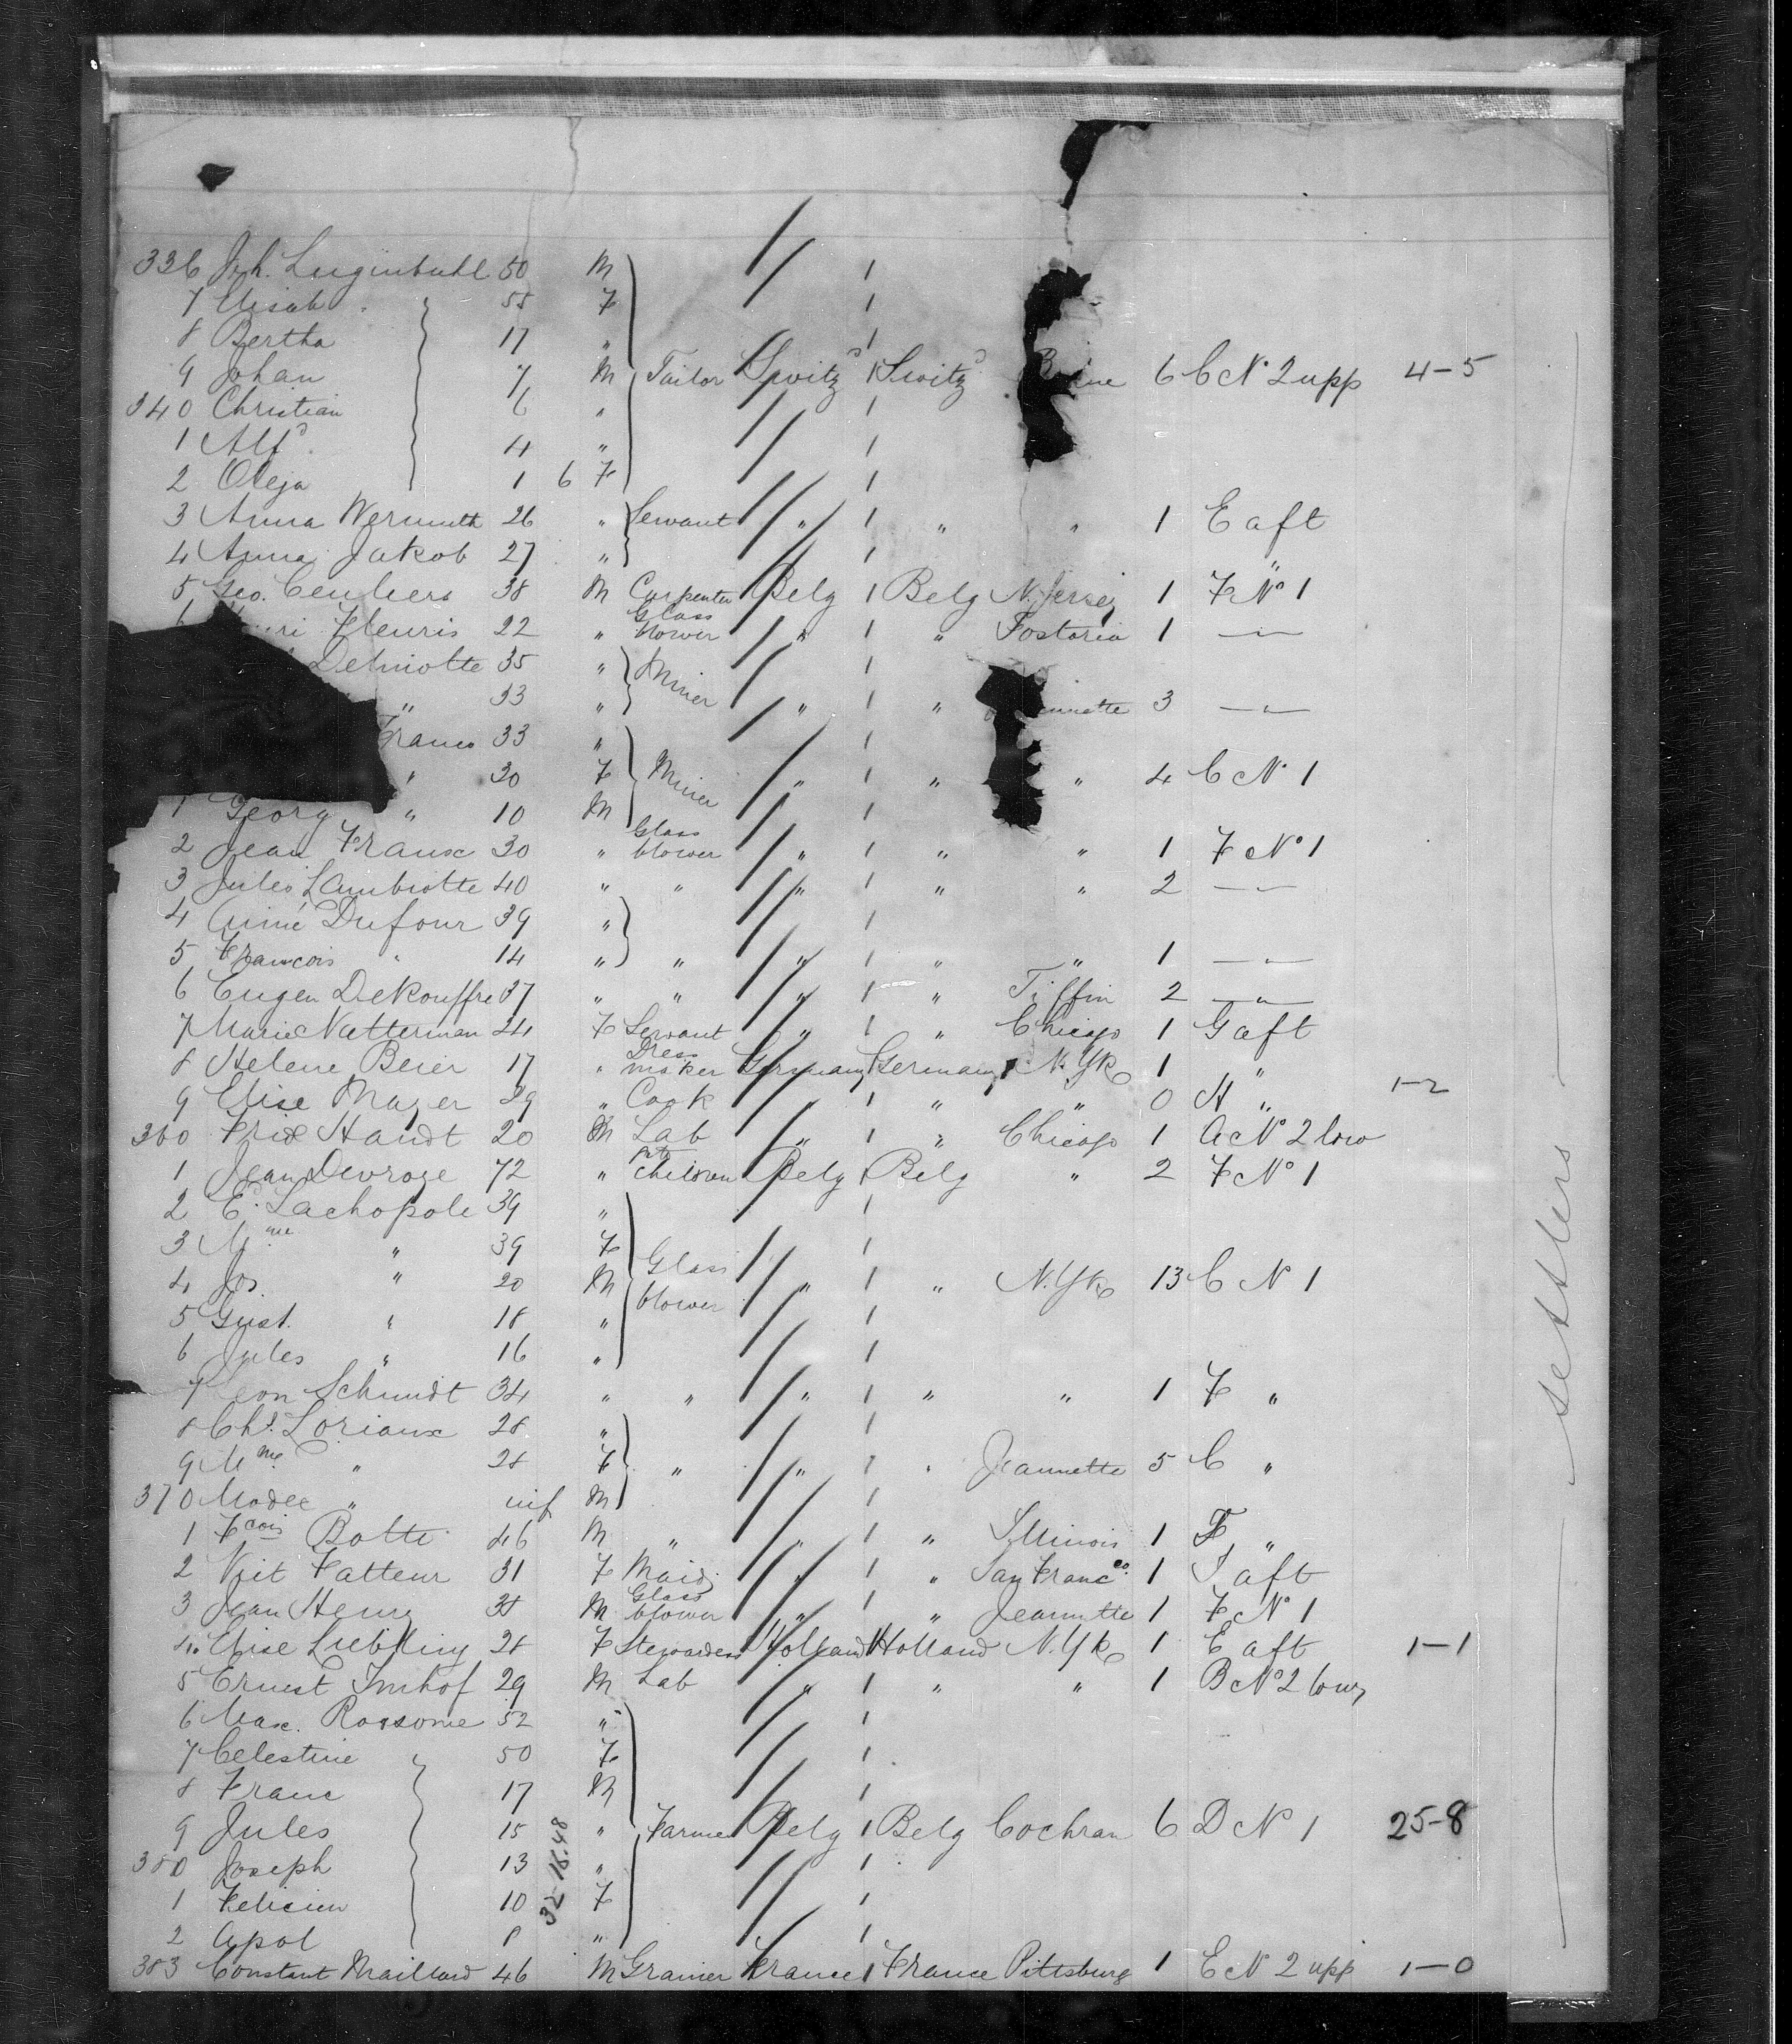 336 Joh. Luginbuhl 50 M
7 Elisab " 55 F
8 Bertha 17 "
9 Johan 7 M Tailor Switzd 1 Switzd 6 C No 2 upp 4-5
340 Christian 6 "
1 Alfd 4 "
2 Olega 1 6 F
3 Anna Wermuth 26 " Servant " 1 " " 1 E aft
4 Anna Jakob 27 " 1 "
5 Geo. Ceuliers 38 M Carpenter Belg 1 Belg N. Jersey 1 F No 1
Fleuris 22 " Glass blower " 1 " Fostoria 1 —"—
Delmotte 35 " Miner 1
" 33 " " 1 " 3 —"—
33 " 1
" 30 F Miner " 1 " " 4 C No 1
1 Georg " 10 M 1
2 Jean Fraux 30 " Glass blower " 1 " " 1 F No 1
3 Jules Lambiotte 40 " " " 1 " " 2 —"—
4 Aimé Dufour 39 " 1
5 Francois " 14 " " " 1 " " 1 —"—
6 Eugen Dekouffre 37 " " " 1 " Tiffin 2 —"—
7 Marie Natterman 24 F Servant " 1 " Chicago 1 G aft
8 Helene Beier 17 " Dress maker Germany 1 Germany N. Yk 1 "
9 Elise Mayer 29 " Cook " 1 " " 0 H " 1-2
360 Fried Handt 20 M Lab " 1 " Chicago 1 A No 2 low
1 Jean Devroge 72 " children Belg 1 Belg " 2 F No 1
2 E. Lachopole 39 " 1
3 Mme " 39 F 1
4 Jos. " 20 M Glass blower " 1 " N. Yk 13 C N 1
5 Gust. " 18 " 1
6 Jules " 16 " 1
7 Leon Schmidt 34 " " " 1 " " 1 F "
8 Chs. Loriaux 28 " 1
9 Mme " 28 F " " 1 " Jeannette 5 C "
370 " inf M 1
1 Fcois Botte 46 M " " 1 " Illinois 1 F "
2 Vict Fatteur 31 F Maid " 1 " San Francco 1 aft
3 Jean Henry 38 M Glass blower " 1 " Jeannette 1 F No 1
4 Elise Liebling 28 F Stewardess Holland 1 Holland N. Yk 1 E aft 1-1
5 Ernest Imhof 29 M Lab " 1 " " 1 B No 2 low
6 Max. Rossome 52 " 1
7 Celestine " 50 F 1
8 Franc 17 M 1
9 Jules 15 " Farmer Belg 1 Belg Cochran 6 D N 1 25-8
380 Joseph 13 " 1
1 Felicien 10 F 1
2 Apol 8 " 1
383 Constant Maillard 46 M Grainer France 1 France Pittsburg 1 E N 2 upp 1-0
32-16.48
settlers